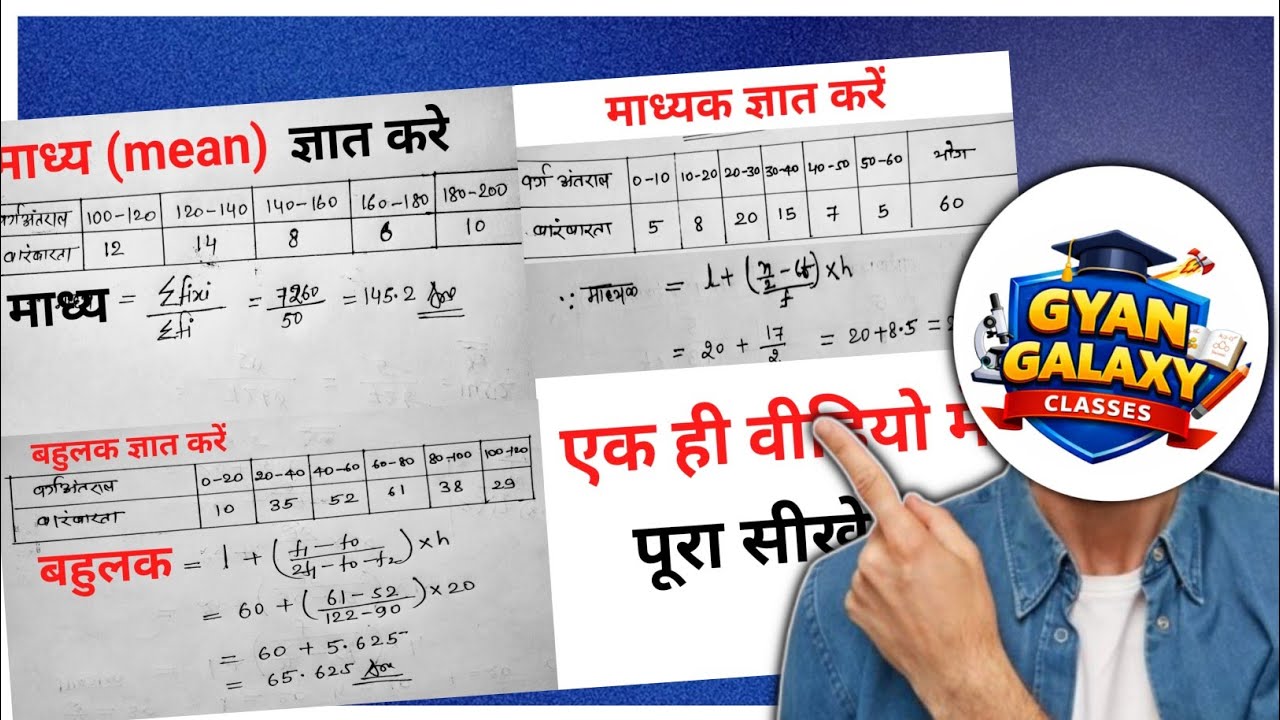 माध्य (mean) ज्ञात करे
वर्गअंतराल 100-120 120-140 140-160 160-180 180-200
बारंबारता 12 14 8 6 10
माध्य = Σfixi/Σfi = 7260/50 = 145.2 Ans
माध्यक ज्ञात करें
वर्ग अंतराल 0-10 10-20 20-30 30-40 40-50 50-60 योग
बारंबारता 5 8 20 15 7 5 60
∵ माध्यक = l + (n/2 - cf/f) × h
= 20 + 17/2 = 20 + 8.5 =
बहुलक ज्ञात करें
वर्गअंतराल 0-20 20-40 40-60 60-80 80-100 100-120
बारंबारता 10 35 52 61 38 29
बहुलक = l + (f1 - f0/2f1 - f0 - f2) × h
= 60 + (61-52/122-90) × 20
= 60 + 5.625
= 65.625 Ans
एक ही वीडियो में
पूरा सीखे
GYAN
GALAXY
CLASSES